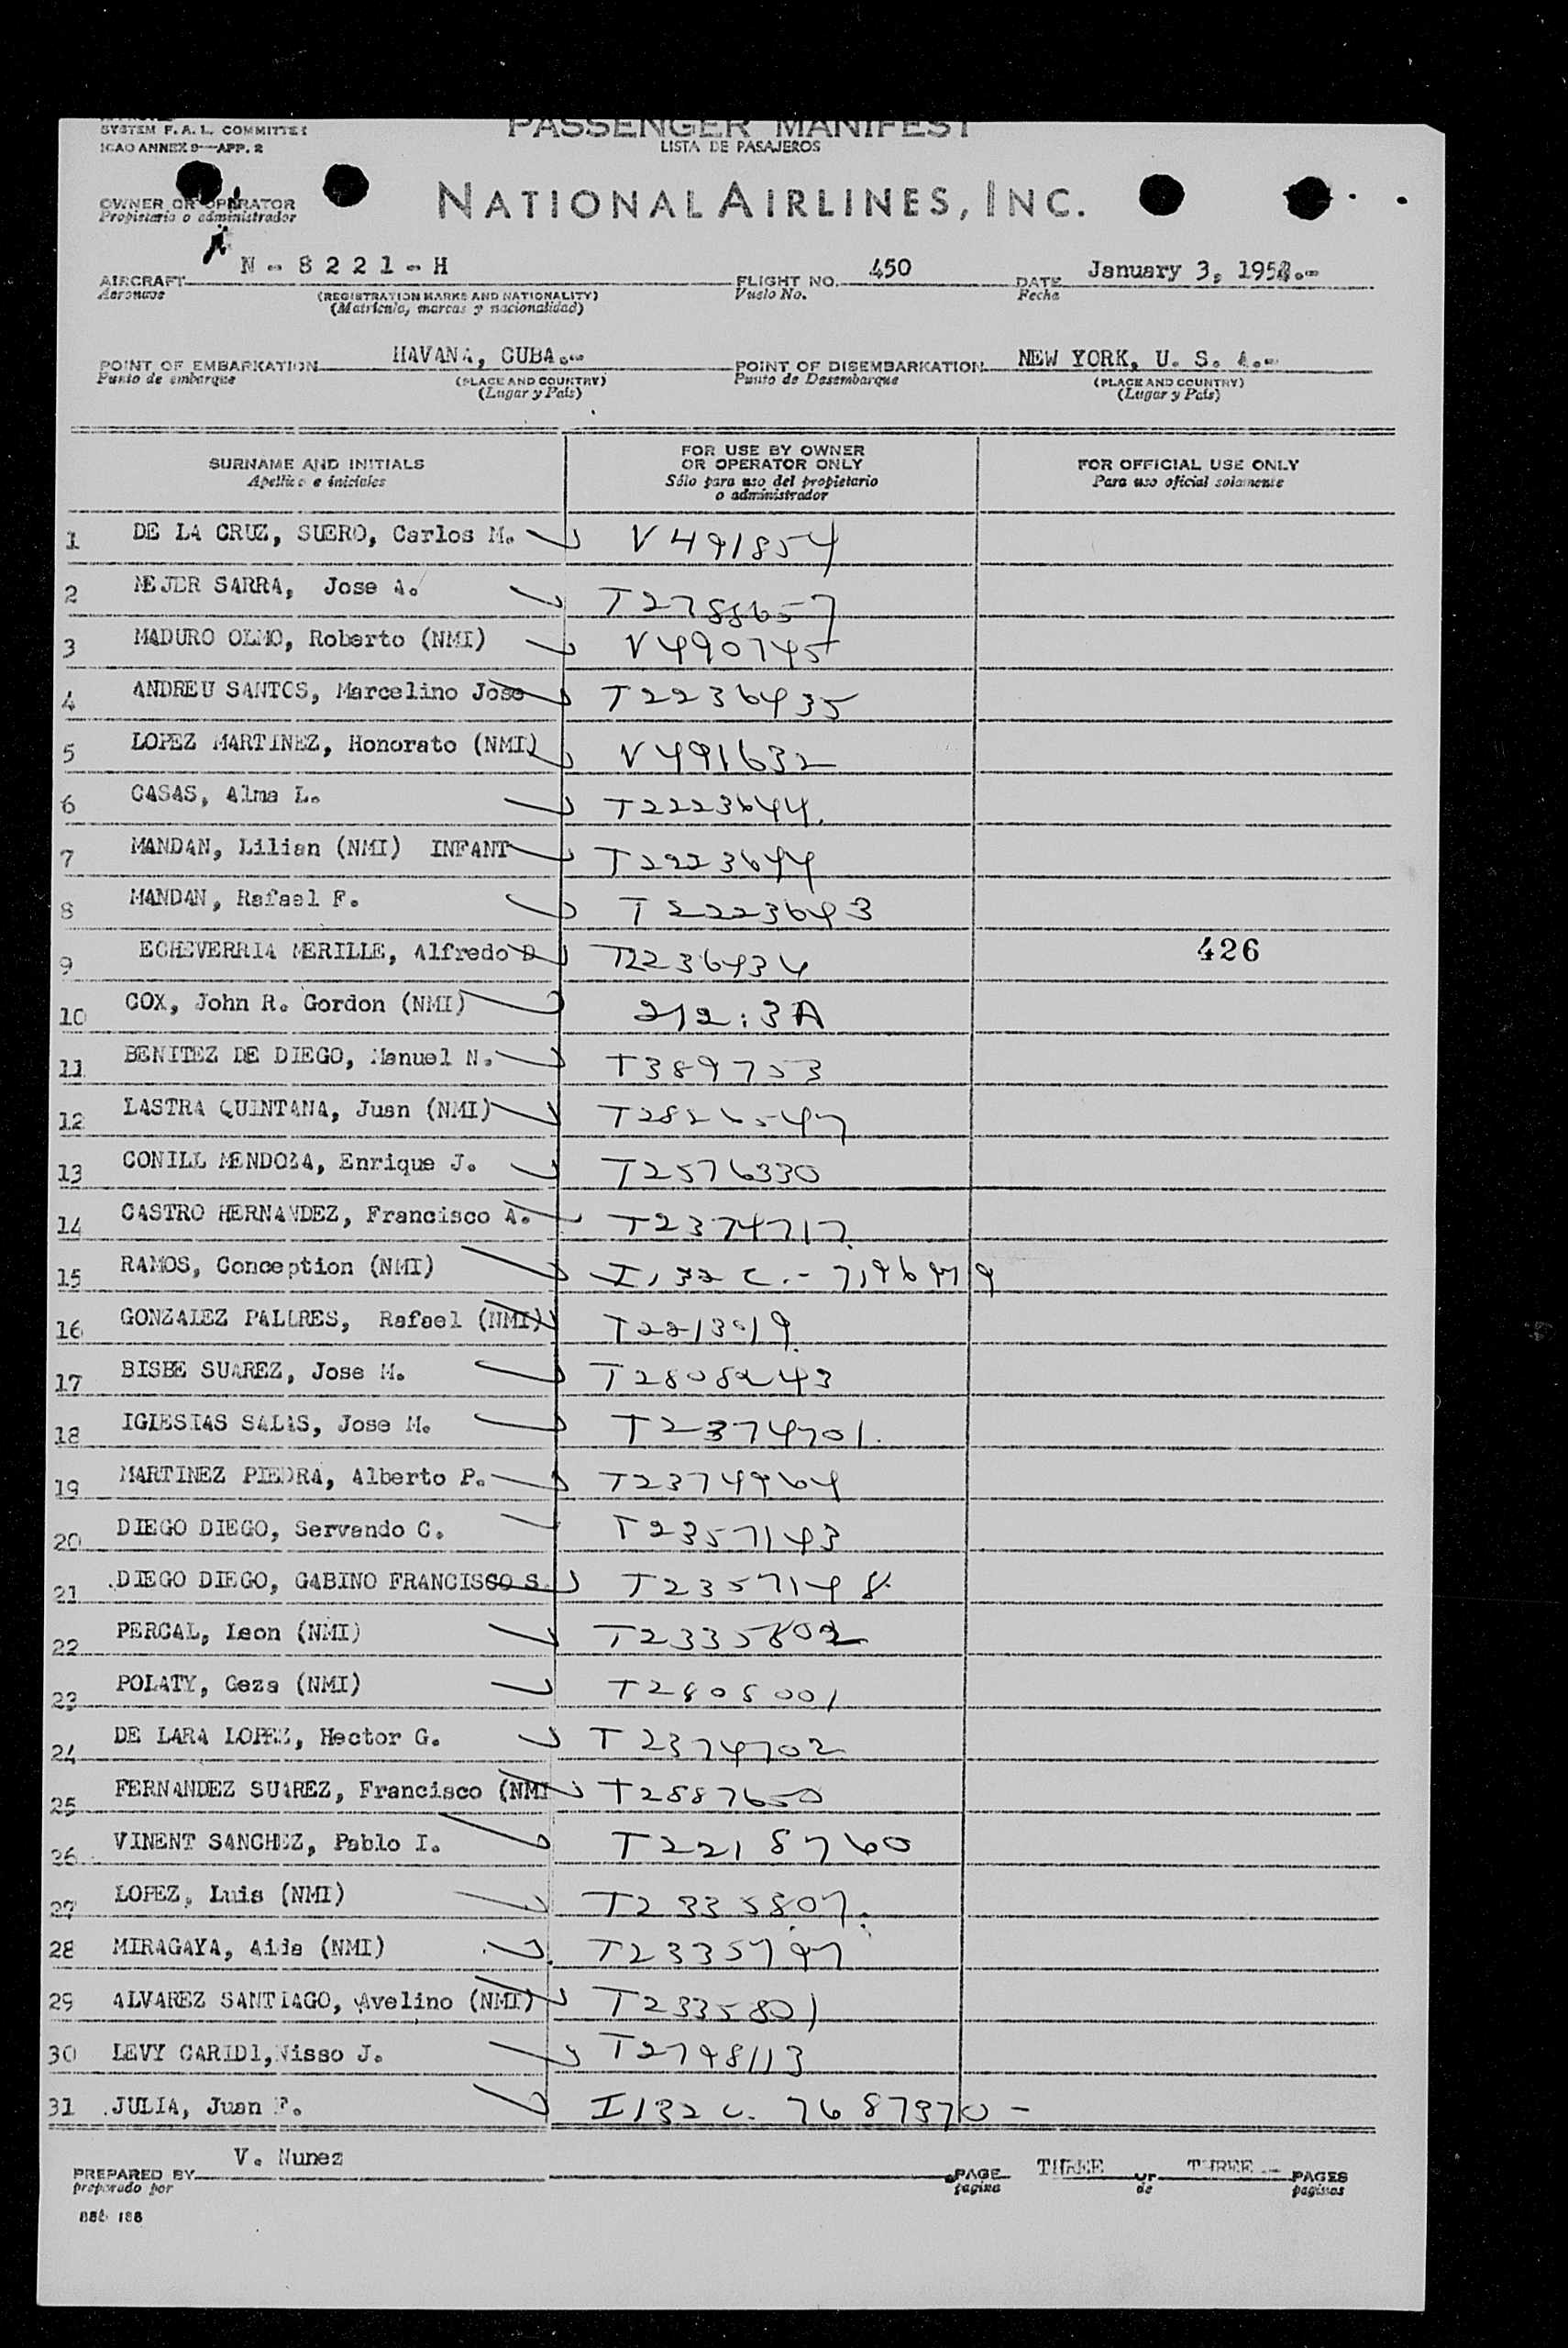 SYSTEM F. A. L. COMMITTEE
ICAO ANNEX 9—APP. 2
PASSENGER MANIFEST
LISTA DE PASAJEROS
OWNER OR OPERATOR
Propietario o administrador
NATIONAL AIRLINES, INC.
AIRCRAFT N - 8 2 2 1 - H FLIGHT NO. 450 DATE January 3, 195
Aeronave (REGISTRATION MARKS AND NATIONALITY) Vuelo No. Fecha
(Matrícula, marcas y nacionalidad)
POINT OF EMBARKATION HAVANA, CUBA.-- POINT OF DISEMBARKATION NEW YORK, U. S. A.--
Punto de embarque (PLACE AND COUNTRY) Punto de Desembarque (PLACE AND COUNTRY)
(Lugar y País) (Lugar y País)
SURNAME AND INITIALS FOR USE BY OWNER OR OPERATOR ONLY FOR OFFICIAL USE ONLY
Apellido e iniciales Sólo para uso del propietario o administrador Para uso oficial solamente
1 DE LA CRUZ, SUERO, Carlos M. V491854
2 MEJER SARRA, Jose A. T2788657
3 MADURO OLMO, Roberto (NMI) V490745
4 ANDREU SANTOS, Marcelino Jose T2236435
5 LOPEZ MARTINEZ, Honorato (NMI) V491632
6 CASAS, Alma L. T2223644.
7 MANDAN, Lilian (NMI) INFANT T2223644
8 MANDAN, Rafael F. T2223643
9 ECHEVERRIA MERILLE, Alfredo D T2236434 426
10 COX, John R. Gordon (NMI) 212:3A
11 BENITEZ DE DIEGO, Manuel N. T389753
12 LASTRA QUINTANA, Juan (NMI) T2826547
13 CONILL MENDOZA, Enrique J. T2576330
14 CASTRO HERNANDEZ, Francisco A. T2374717.
15 RAMOS, Conception (NMI) I,132 C.- 7196979
16 GONZALEZ PALLRES, Rafael (NMI) T2213019.
17 BISBE SUAREZ, Jose M. T2808243
18 IGIESIAS SALAS, Jose M. T2374701.
19 MARTINEZ PIEDRA, Alberto P. T2374964
20 DIEGO DIEGO, Servando C. T2357143
21 DIEGO DIEGO, GABINO FRANCISCO S. T2357148.
22 PERCAL, Leon (NMI) T2335802
23 POLATY, Geza (NMI) T2808001
24 DE LARA LOPEZ, Hector G. T2374702
25 FERNANDEZ SUAREZ, Francisco (NMI T2887650
26 VINENT SANCHEZ, Pablo I. T2218760
27 LOPEZ, Luis (NMI) T2335807.
28 MIRAGAYA, Aida (NMI) T2335797
29 ALVAREZ SANTIAGO, Avelino (NMI) T2335801
30 LEVY CARIDI, Nisso J. T2798113
31 JULIA, Juan F. I132 C. 7687370 -
PREPARED BY V. Nunez PAGE THREE OF THREE - PAGES
preparado por pagina de paginas